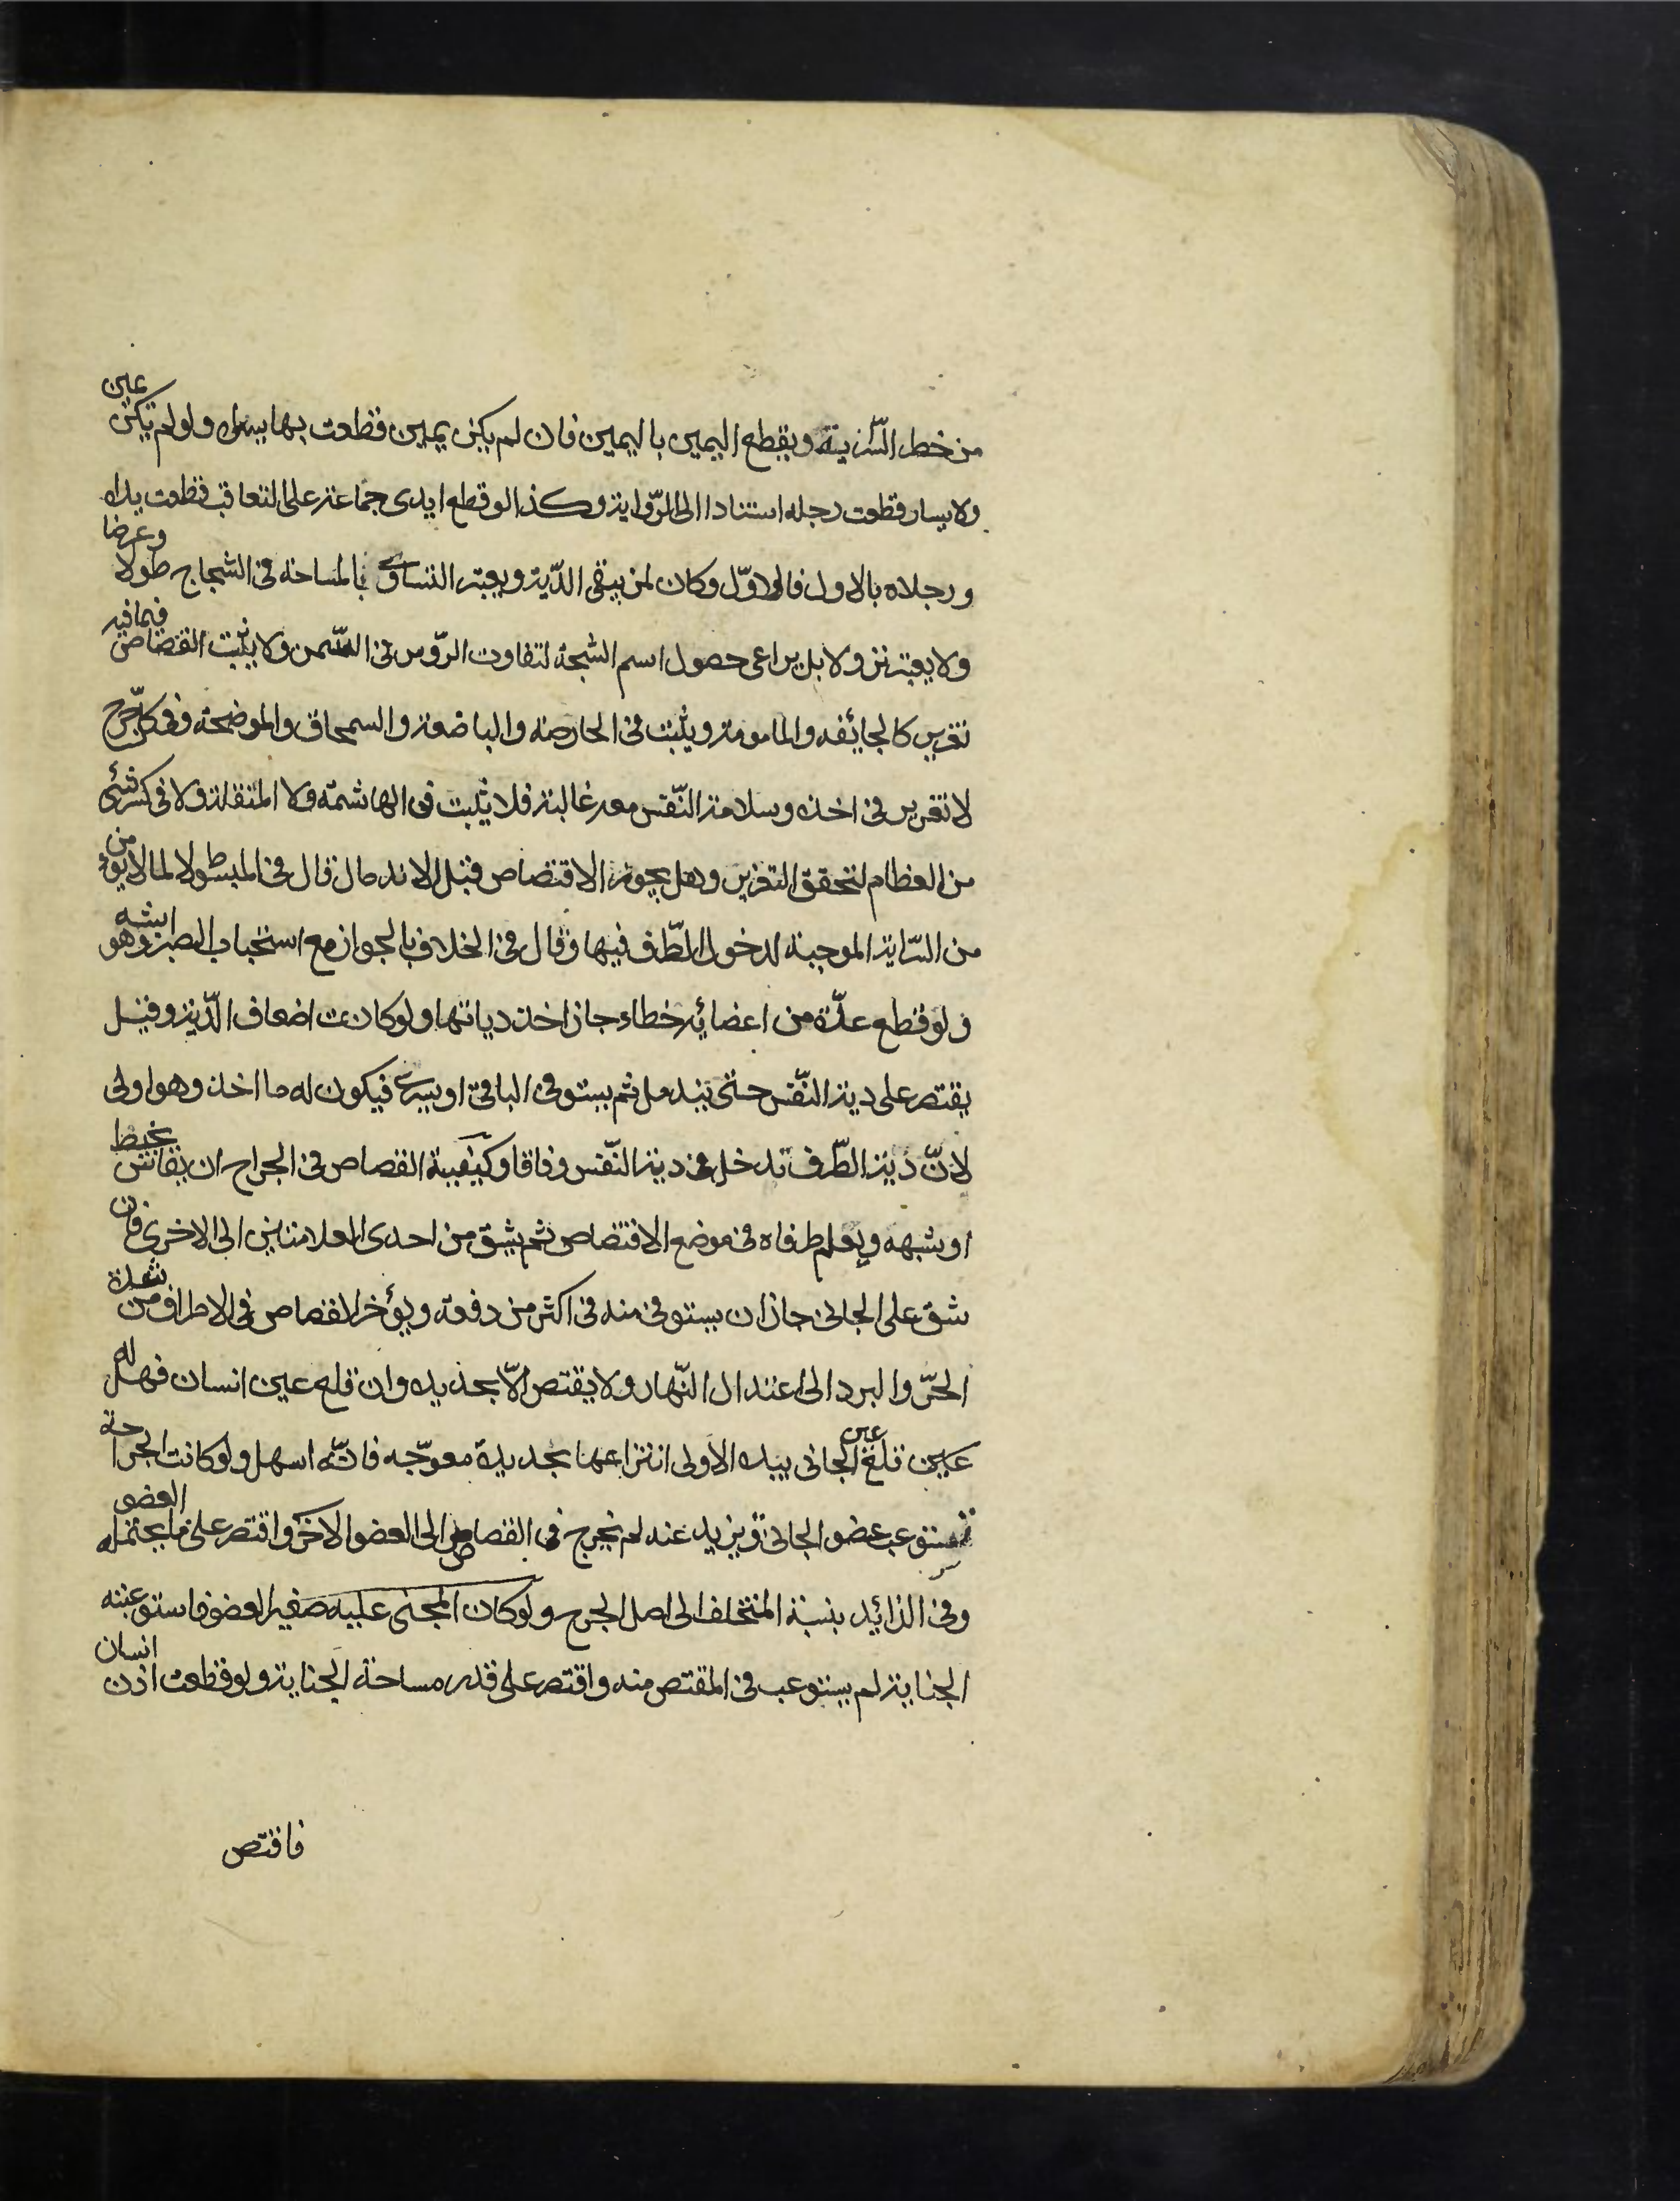 من خطر السراية ويقطع اليمين باليمين فان لم يكن يمين قطعت بها يسراه ولو لم تكن يمين
ولا يسار قطعت رجله استنادا الى الرّواية وكذا لو قطع ايدى جماعة على التعاقب قطعت يداه
ورجلاه بالاول فالاوّل وكان لمن يبقى الدّية ويعتبر التساوى بالمساحة فى الشجاج طولا وعرضا
ولا يعتبر نزولا بل يراعى حصول اسم الشجة لتفاوت الرّوس فى السّمن ولا يثبت القصاص فيما فيه
تغرير كالجائفه والمامومة ويثبت فى الحارصة والباضعة والسمحاق والموضحة وفى كلّ جرح
لا تغرير فى اخذه وسلامة النّفس معه غالبة فلا يثبت فى الهاشمة ولا المنقلة ولا فى كسر شئ
من العظام لتحقق التغرير وهل يجوز الاقتصاص قبل الاندمال قال فى المبسوط لا لما لا يؤمن
من السّراية الموجبة لدخول الطّرف فيها وقال فى الخلاف بالجواز مع استحباب الصبر وهو اشبه
ولو قطع عدّة من اعضائه خطاء جاز اخذ دياتها ولو كانت اضعاف الدّية وقيل
يقتصر على دية النّفس حتى يندمل ثم يستوفى الباقى او يسرى فيكون له ما اخذ وهو اولى
لانّ دية الطّرف تدخل فى دية النّفس وفاقا وكيفية القصاص فى الجراح ان يقاس بخيط
او شبهه ويعلم طرفاه فى موضع الاقتصاص ثم يشق من احدى العلامتين الى الاخرى فان
شق على الجانى جاز ان يستوفى منه فى اكثر من دفعة ويؤخر القصاص فى الاطراف من شدة
الحرّ والبرد الى اعتدال النّهار ولا يقتص الاّ بحديده وان قلع عين انسان فهل له
قلع عين الجانى بيده الاولى انتزاعها بحديدة معوّجه فانّه اسهل ولو كانت الجراحة
تستوعب عضو الجانى وتزيد عنه لم يخرج فى القصاص الى العضو الاخر واقتصر على ما يحتمله العضو
وفى الزائد بنسبة المتخلف الى اصل الجرح ولو كان المجنى عليه صغير العضو فاستوعبته
الجناية لم يستوعب فى المقتص منه واقتصر على قدر مساحة الجناية ولو قطعت اذن انسان
فاقتص